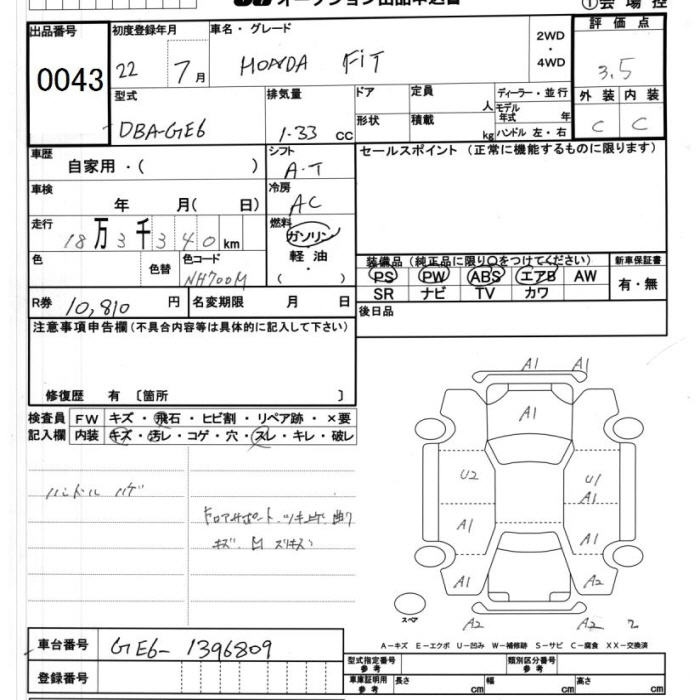 オークション出品申込書
①会場控
出品番号
0043
初度登録年月
22 7月
車名・グレード
HONDA FiT
2WD
・
4WD
評価点
3.5
外装 内装
C C
型式
DBA-GE6
排気量
1.33 cc
ドア
形状
定員 人
積載 kg
ディーラー・並行
モデル年式 年
ハンドル 左・右
車歴
自家用・( )
シフト
A・T
セールスポイント (正常に機能するものに限ります)
車検
年 月( 日)
冷房
AC
走行
18万3千340km
燃料
ガソリン
軽油
・
( )
色
色替
色コード
NH700M
装備品 (純正品に限り○をつけてください)
PS PW ABS エアB AW
SR ナビ TV カワ
新車保証書
有・無
R券 10,810 円
名変期限 月 日
後日品
注意事項申告欄(不具合内容等は具体的に記入して下さい)
修復歴 有 〔箇所 〕
検査員記入欄
FW キズ・飛石・ヒビ割・リペア跡・×要
内装 キズ・汚レ・コゲ・穴・スレ・キレ・破レ
ハンドル ハゲ
A1 A1
A1
U2 U1
A1
A1 A1
A1 A2
A2 A2 2
スペア
A-キズ E-エクボ U-凹み W-補修跡 S-サビ C-腐食 XX-交換済
車台番号 GE6-1396809
登録番号
型式指定番号 参考
類別区分番号 参考
車庫証明用 参考
長さ cm 幅 cm 高さ cm